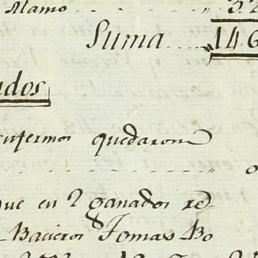 Alamo ..... 32
Suma .... 14.6
ados
enfermos quedaron
que en 2 ganados re
Baqueros Tomas Bo